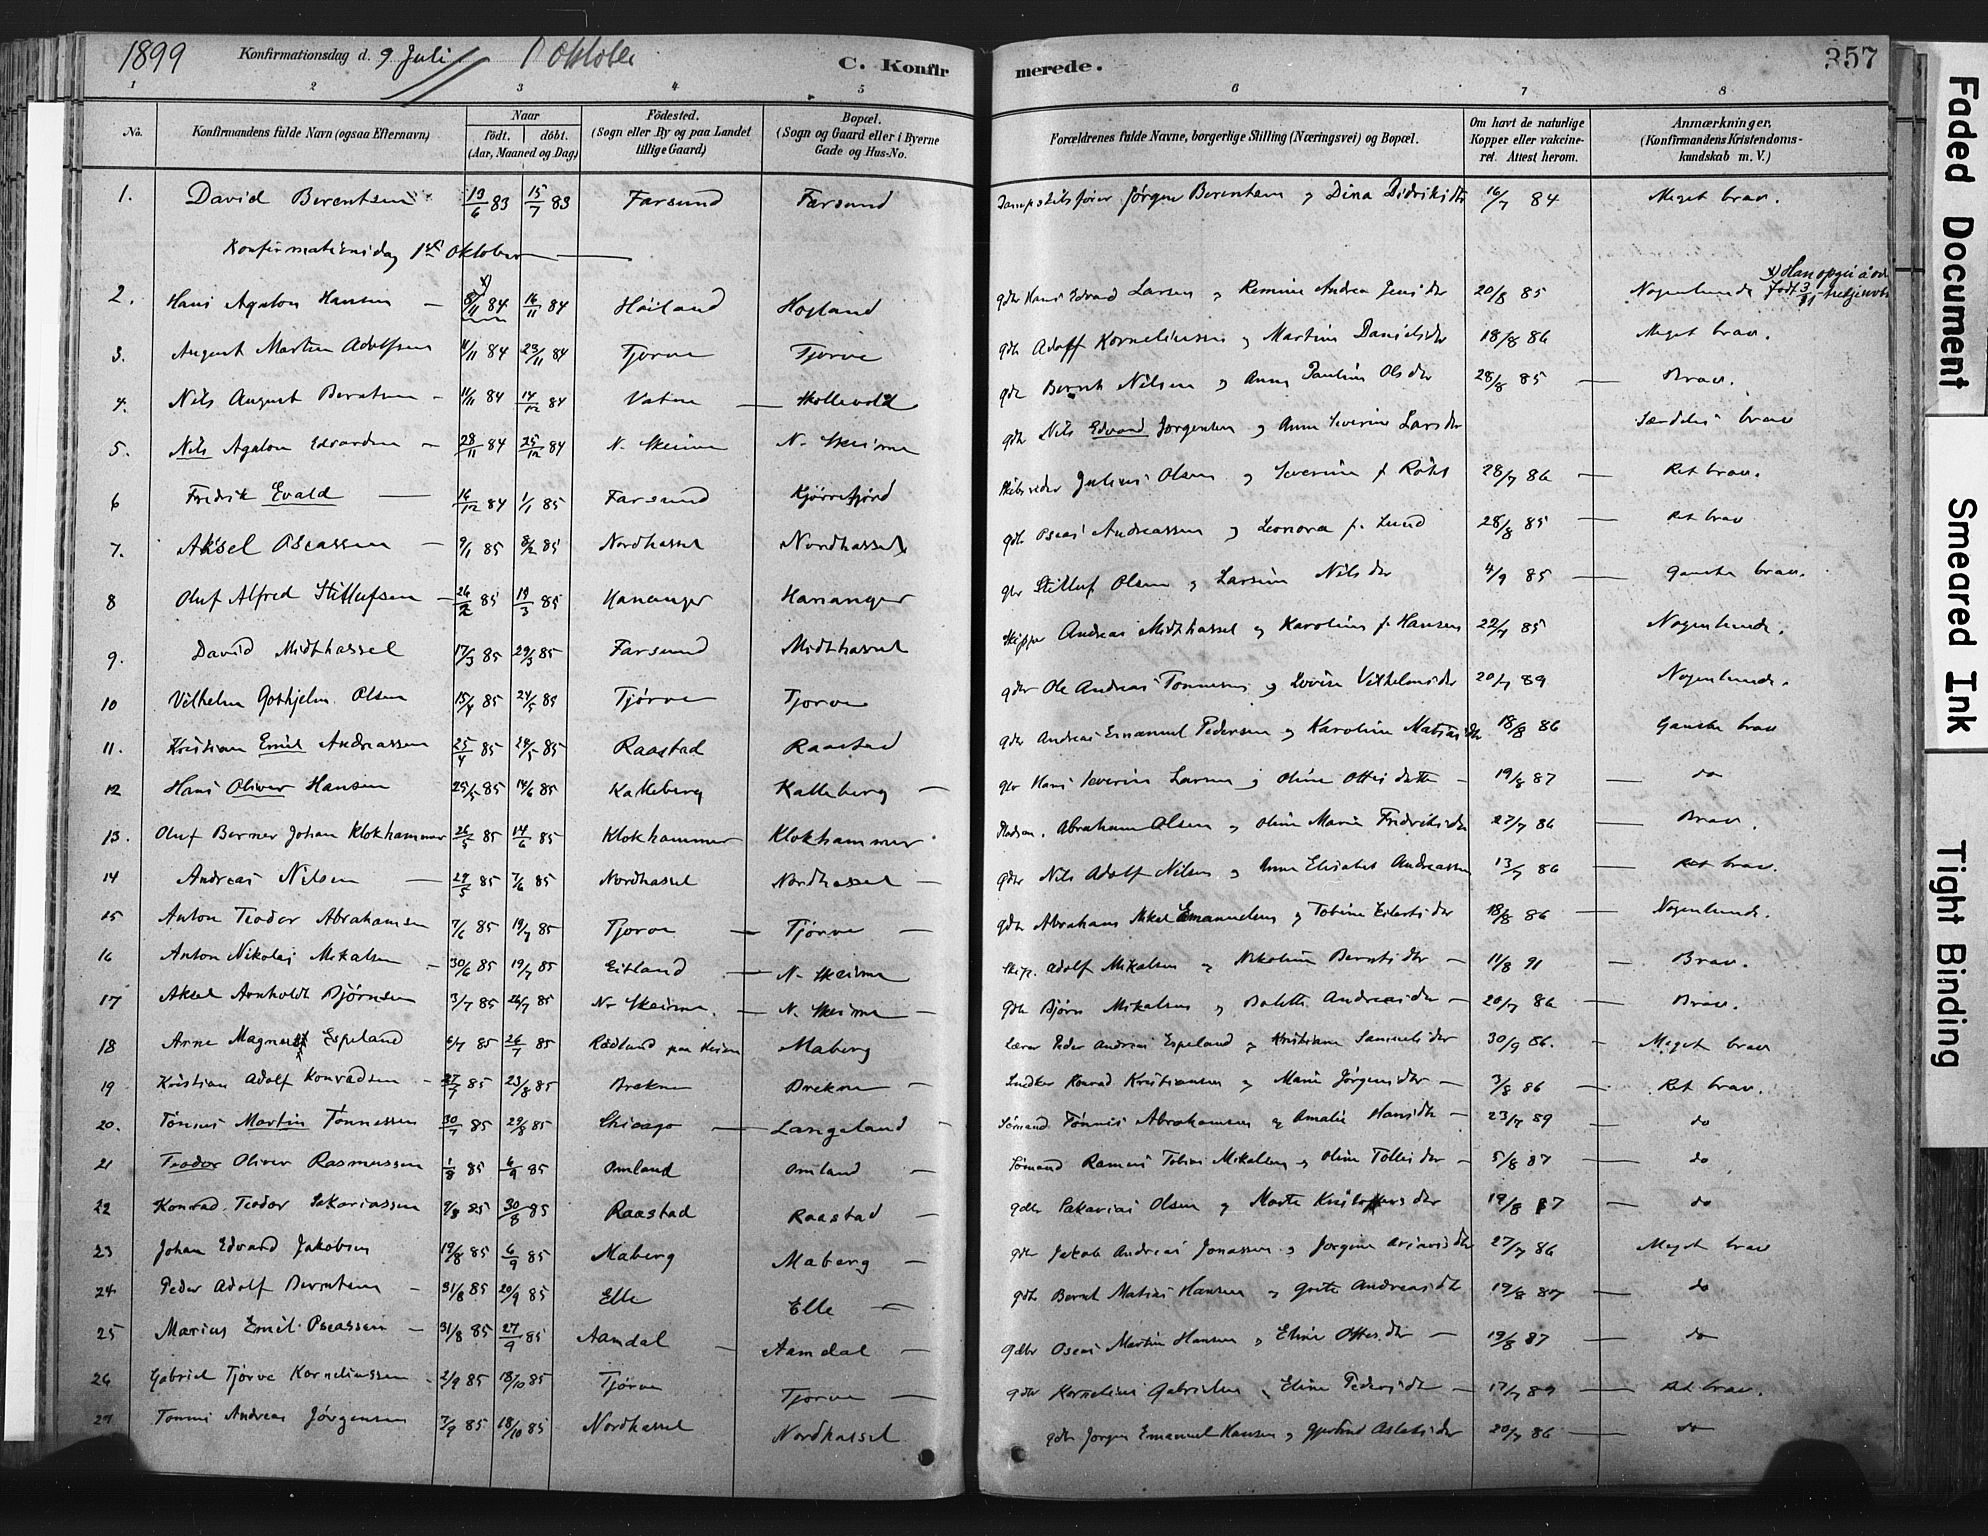 1899 Konfirmationsdag d. 9 Juli 1 Oktober C. Konfirmerede. 357
1 2 3 4 5 6 7 8
No. Konfirmandens fulde Navn (ogsaa Efternavn) Naar født. døbt. (Aar, Maaned og Dag) Födested. (Sogn eller By og paa Landet tillige Gaard) Bopæl. (Sogn og Gaard eller i Byerne Gade og Hus-No. Forældrenes fulde Navne, borgerlige Stilling (Næringsvei) og Bopæl. Om havt de naturlige Kopper eller vakcineret. Attest herom. Anmærkninger, (Konfirmandens Kristendomskundskab m. V.)
1. David Berentsen 13/6 83 15/7 83 Farsund Farsund Dampskibsfører Jørgen Berentsen og Dina Didriksdtr 16/7 84 Meget brav.
Konfirmationsdag 1ste Oktober
2. Hans Agaton Hansen 8/11 84 16/11 84 Høiland Høyland gdbr Hans Edvard Larsen og Remine Andrea Jensdtr 20/8 85 Nogenlunde x) Han opgir å være født 3/11
3. August Martin Adolfsen 11/11 84 23/11 84 Tjørve Tjørve gdb Adolf Korneliussen og Martine Danielsdtr 18/8 86 Meget brav.
4. Nils August Berntsen 11/11 84 14/12 84 Vatne Skollevold gdb Bernt Nilsen og Anna Pauline Olsdtr 28/8 85 Brav.
5. Nils Agaton Edvardsen 28/11 84 25/12 84 N. Skeime N. Skeime gdb Nils Edvard Jørgensen og Anne Severine Larsdtr Særdeles brav
6 Fredrik Evald 16/12 84 1/1 85 Farsund Kjørrefjord Skibsreder Julius Olsen og Severine f. Röhs 28/7 86 Ret brav.
7. Aksel Oseassen 9/1 85 8/2 85 Nordhassel Nordhassel gdb Oseas Andreassen og Leonora f. Lund 28/8 85 Ret brav
8 Oluf Alfred Stillufsen 26/2 85 19/3 85 Hananger Hananger gbr Stilluf Olsen og Larsine Nilsdtr 4/9 85 Ganske brav.
9. David Midthassel 17/3 85 29/3 85 Farsund Midthassel Skipper Andreas Midthassel og Karoline f. Hansen 22/7 85 Nogenlunde.
10 Vilhelm Gothjelm Olsen 15/4 85 24/5 85 Tjørve Tjørve gdbr Ole Andreas Tønnesen og Lovise Vilhelmsdtr 20/7 89 Nogenlunde.
11. Kristian Emil Andreassen 25/4 85 24/5 85 Raastad Raastad gdbr Andreas Emanuel Pedersen og Karoline Matiasdtr 18/8 86 Ganske brav
12 Hans Oliver Hansen 25/5 85 14/6 85 Kalleberg Kalleberg gbr Hans Severin Larsen og Oline Ottesdatter 19/8 87 do
13. Oluf Berner Johan Klokhammer 26/5 85 14/6 85 Klokhammer Klokhammer Abraham Olsen og Oline Marie Fridriksdtr 27/7 86 Brav.
14 Andreas Nilsen 29/5 85 7/6 85 Nordhassel Nordhassel gdbr Nils Adolf Nilsen og Anne Elisabet Andreassen 13/7 86 Ret brav.
15 Anton Teodor Abrahamsen 7/6 85 19/7 85 Tjørve Tjørve gdbr Abraham Mikal Emanuelsen og Tobine Eilertsdtr 18/8 86 Nogenlunde.
16 Anton Nikolai Mikalsen 30/6 85 19/7 85 Eitland N. Skeime Skip. Adolf Mikalsen og Nikoline Berntsdtr 11/8 91 Brav.
17 Aksel Arnholdt Bjørnsen 3/7 85 26/7 85 N. Skeime N. Skeime gdb Bjørn Mikalsen og Bolette Andreasdtr 20/7 86 Brav.
18 Arne Magnus Espeland 6/7 85 26/7 85 Rødland paa Maberg Lærer Peder Andreas Espeland og Kristiane Samuelsdtr 30/9 86. Meget brav
19 Kristian Adolf Konradsen 27/7 85 23/8 85 Brekne Brekne Snedker Konrad Kristiansen og Marie Jörgensdtr 3/8 86 Ret brav.
20. Tönnes Martin Tönnessen 30/7 85 29/8 85 Chicago Langeland Sømand Tönnes Abrahamsen og Amalie Hansdtr 23/7 89 do
21 Teodor Oliver Rasmussen 1/8 85 6/9 85 Omland Omland Sømand Rasmus Tobias Mikalsen og Oline Tollesdtr 5/8 87 do
22 Konrad Teodor Sakariassen 9/8 85 30/8 85 Raastad Raastad gdbr Sakarias Olsen og Marte Kristoffersdtr 19/8 87 do
23 Johan Edvard Jakobsen 19/8 85 6/9 85 Maberg Maberg gdb Jakob Andreas Jonassen og Jørgine Ariansdtr 27/7 86 Meget brav
24 Peder Adolf Berntsen 31/8 85 20/9 85 Elle Elle gdb Bernt Matias Hansen og Grete Andreasdtr 19/8 87 do
25 Marius Emil Oseassen 31/8 85 27/9 85 Aamdal Aamdal gdbr Oseas Martin Hansen og Eline Ottesdtr 19/8 87 do
26 Gabriel Tjørve Korneliussen 2/9 85 18/10 85 Tjørve Tjørve gdbr Kornelius Gabrielsen og Eline Pedersdtr 17/7 89 Ret brav.
27 Tønnes Andreas Jörgensen 7/9 85 18/10 85 Nordhassel Nordhassel gdbr Jørgen Emanuel Hansen og Gjertrud Aslaksdtr 20/7 86 do
Faded Document
Smeared Ink
Tight Binding